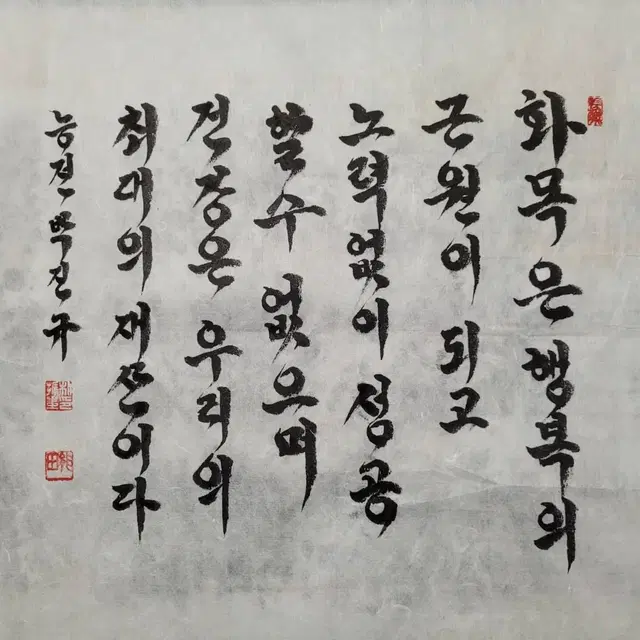 화목은 행복의
근원이 되고
노력없이 성공
할수 없으며
건강은 우리의
최대의 재산이다
능전 박진규